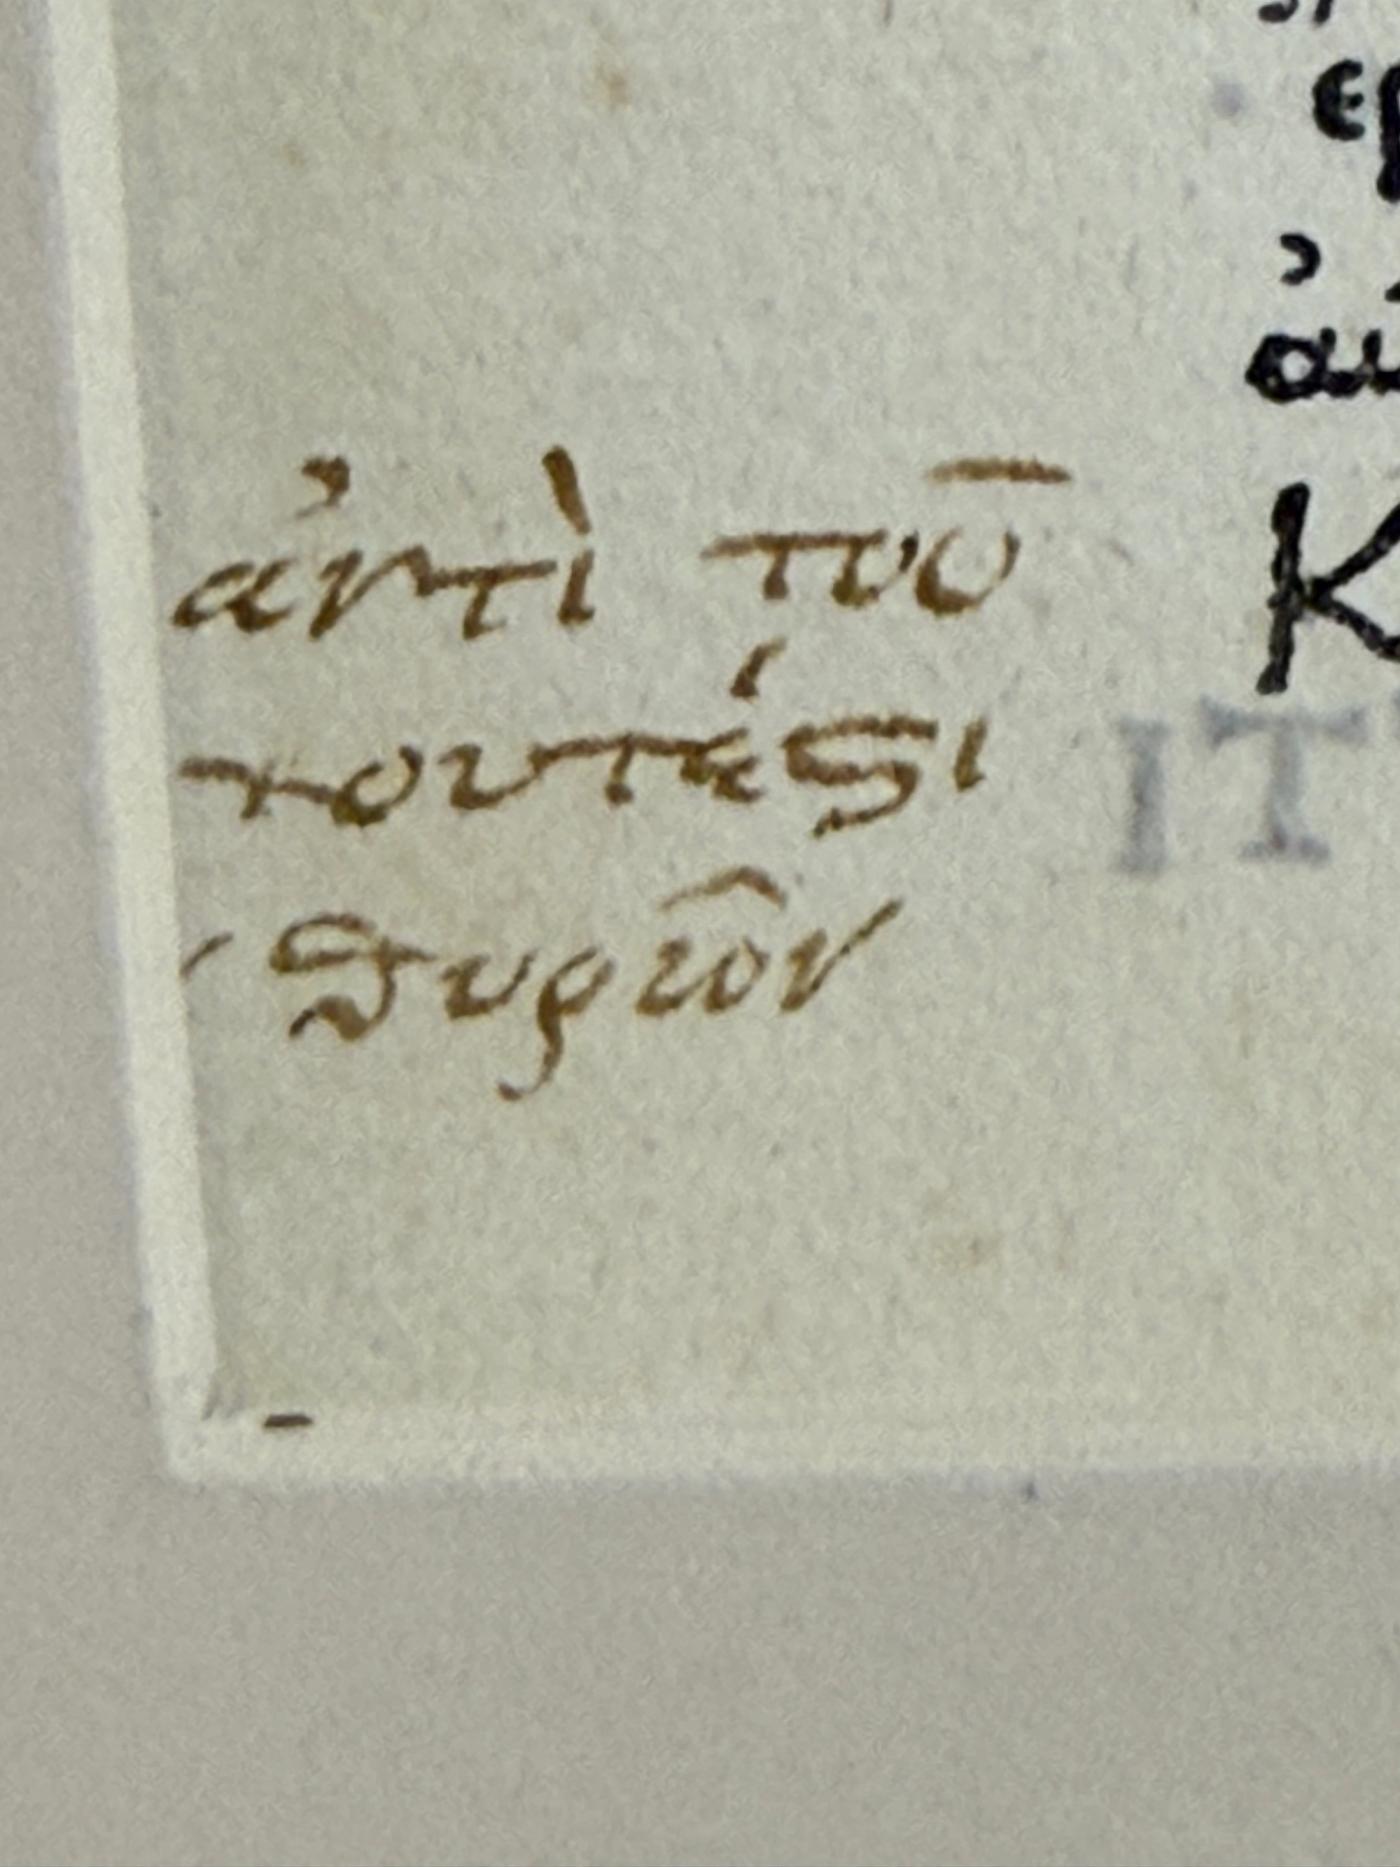 ερ
αυ
ἀντὶ τοῦ
K
τουτέϛι
IT
θυρῶν